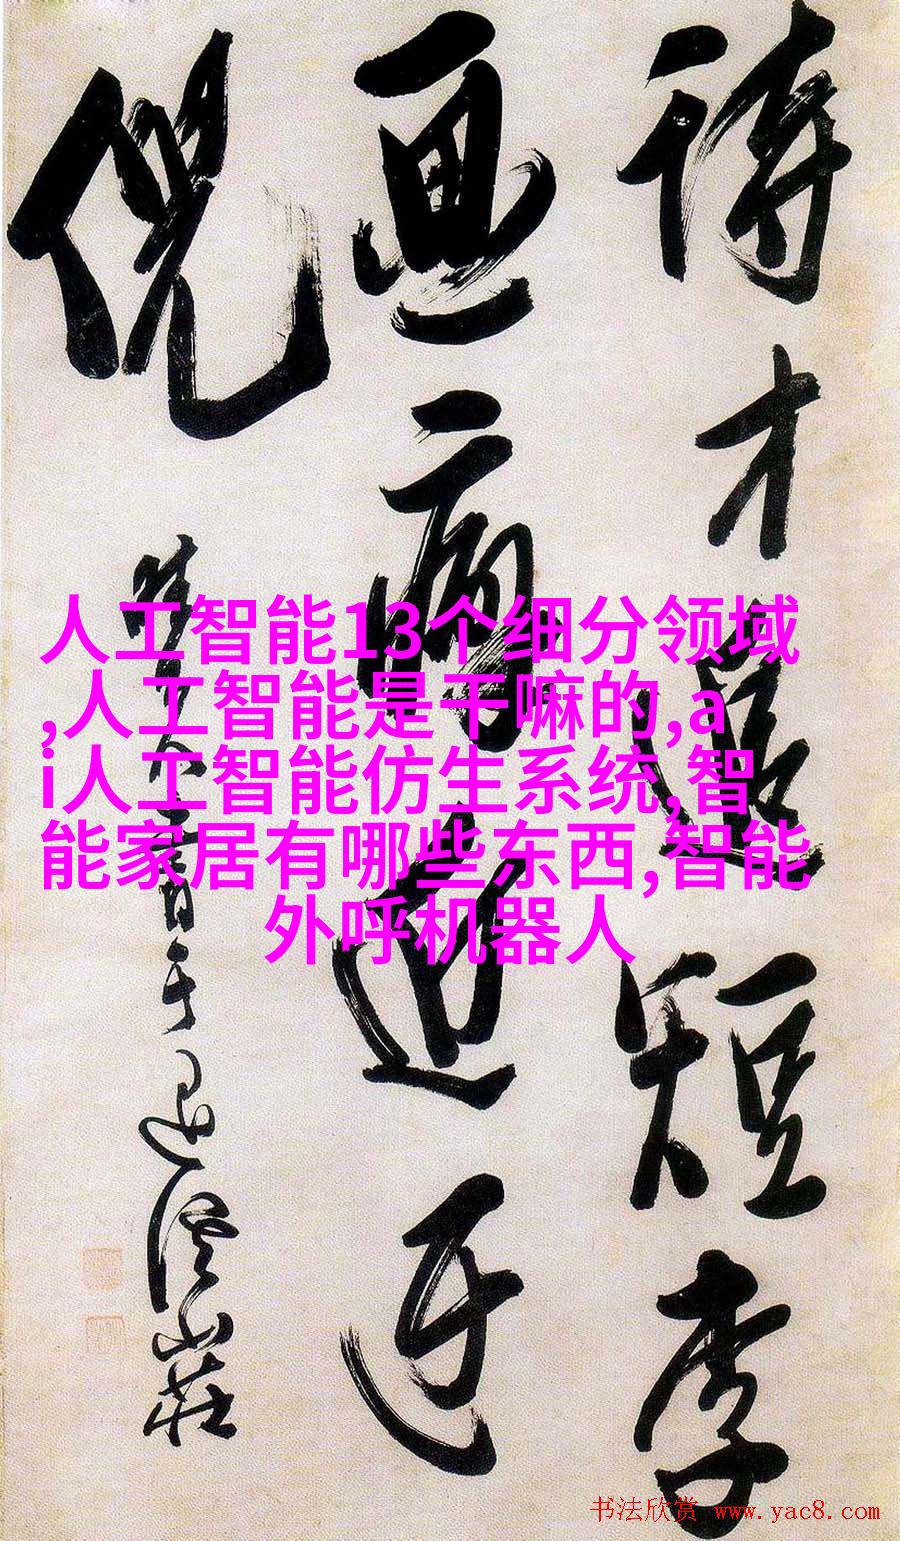 詩才短李
画迂
倪
山莊
人工智能13个细分领域
,人工智能是干嘛的,a
i人工智能仿生系统,智
能家居有哪些东西,智能
外呼机器人
书法欣赏 www.yac8.com